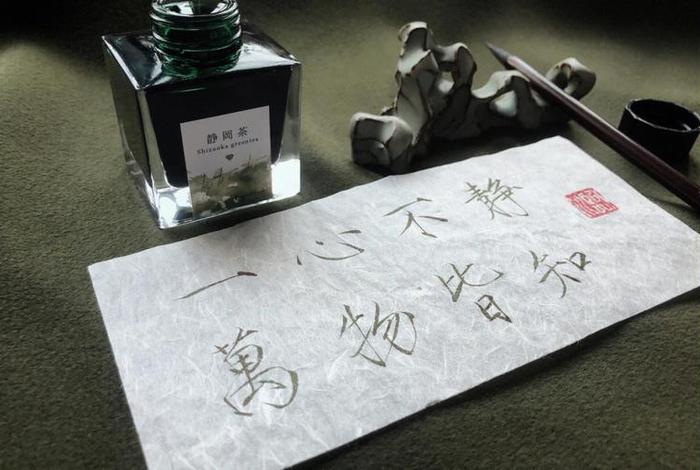 静岡茶
Shizuoka greentea
一心不静
萬物皆知